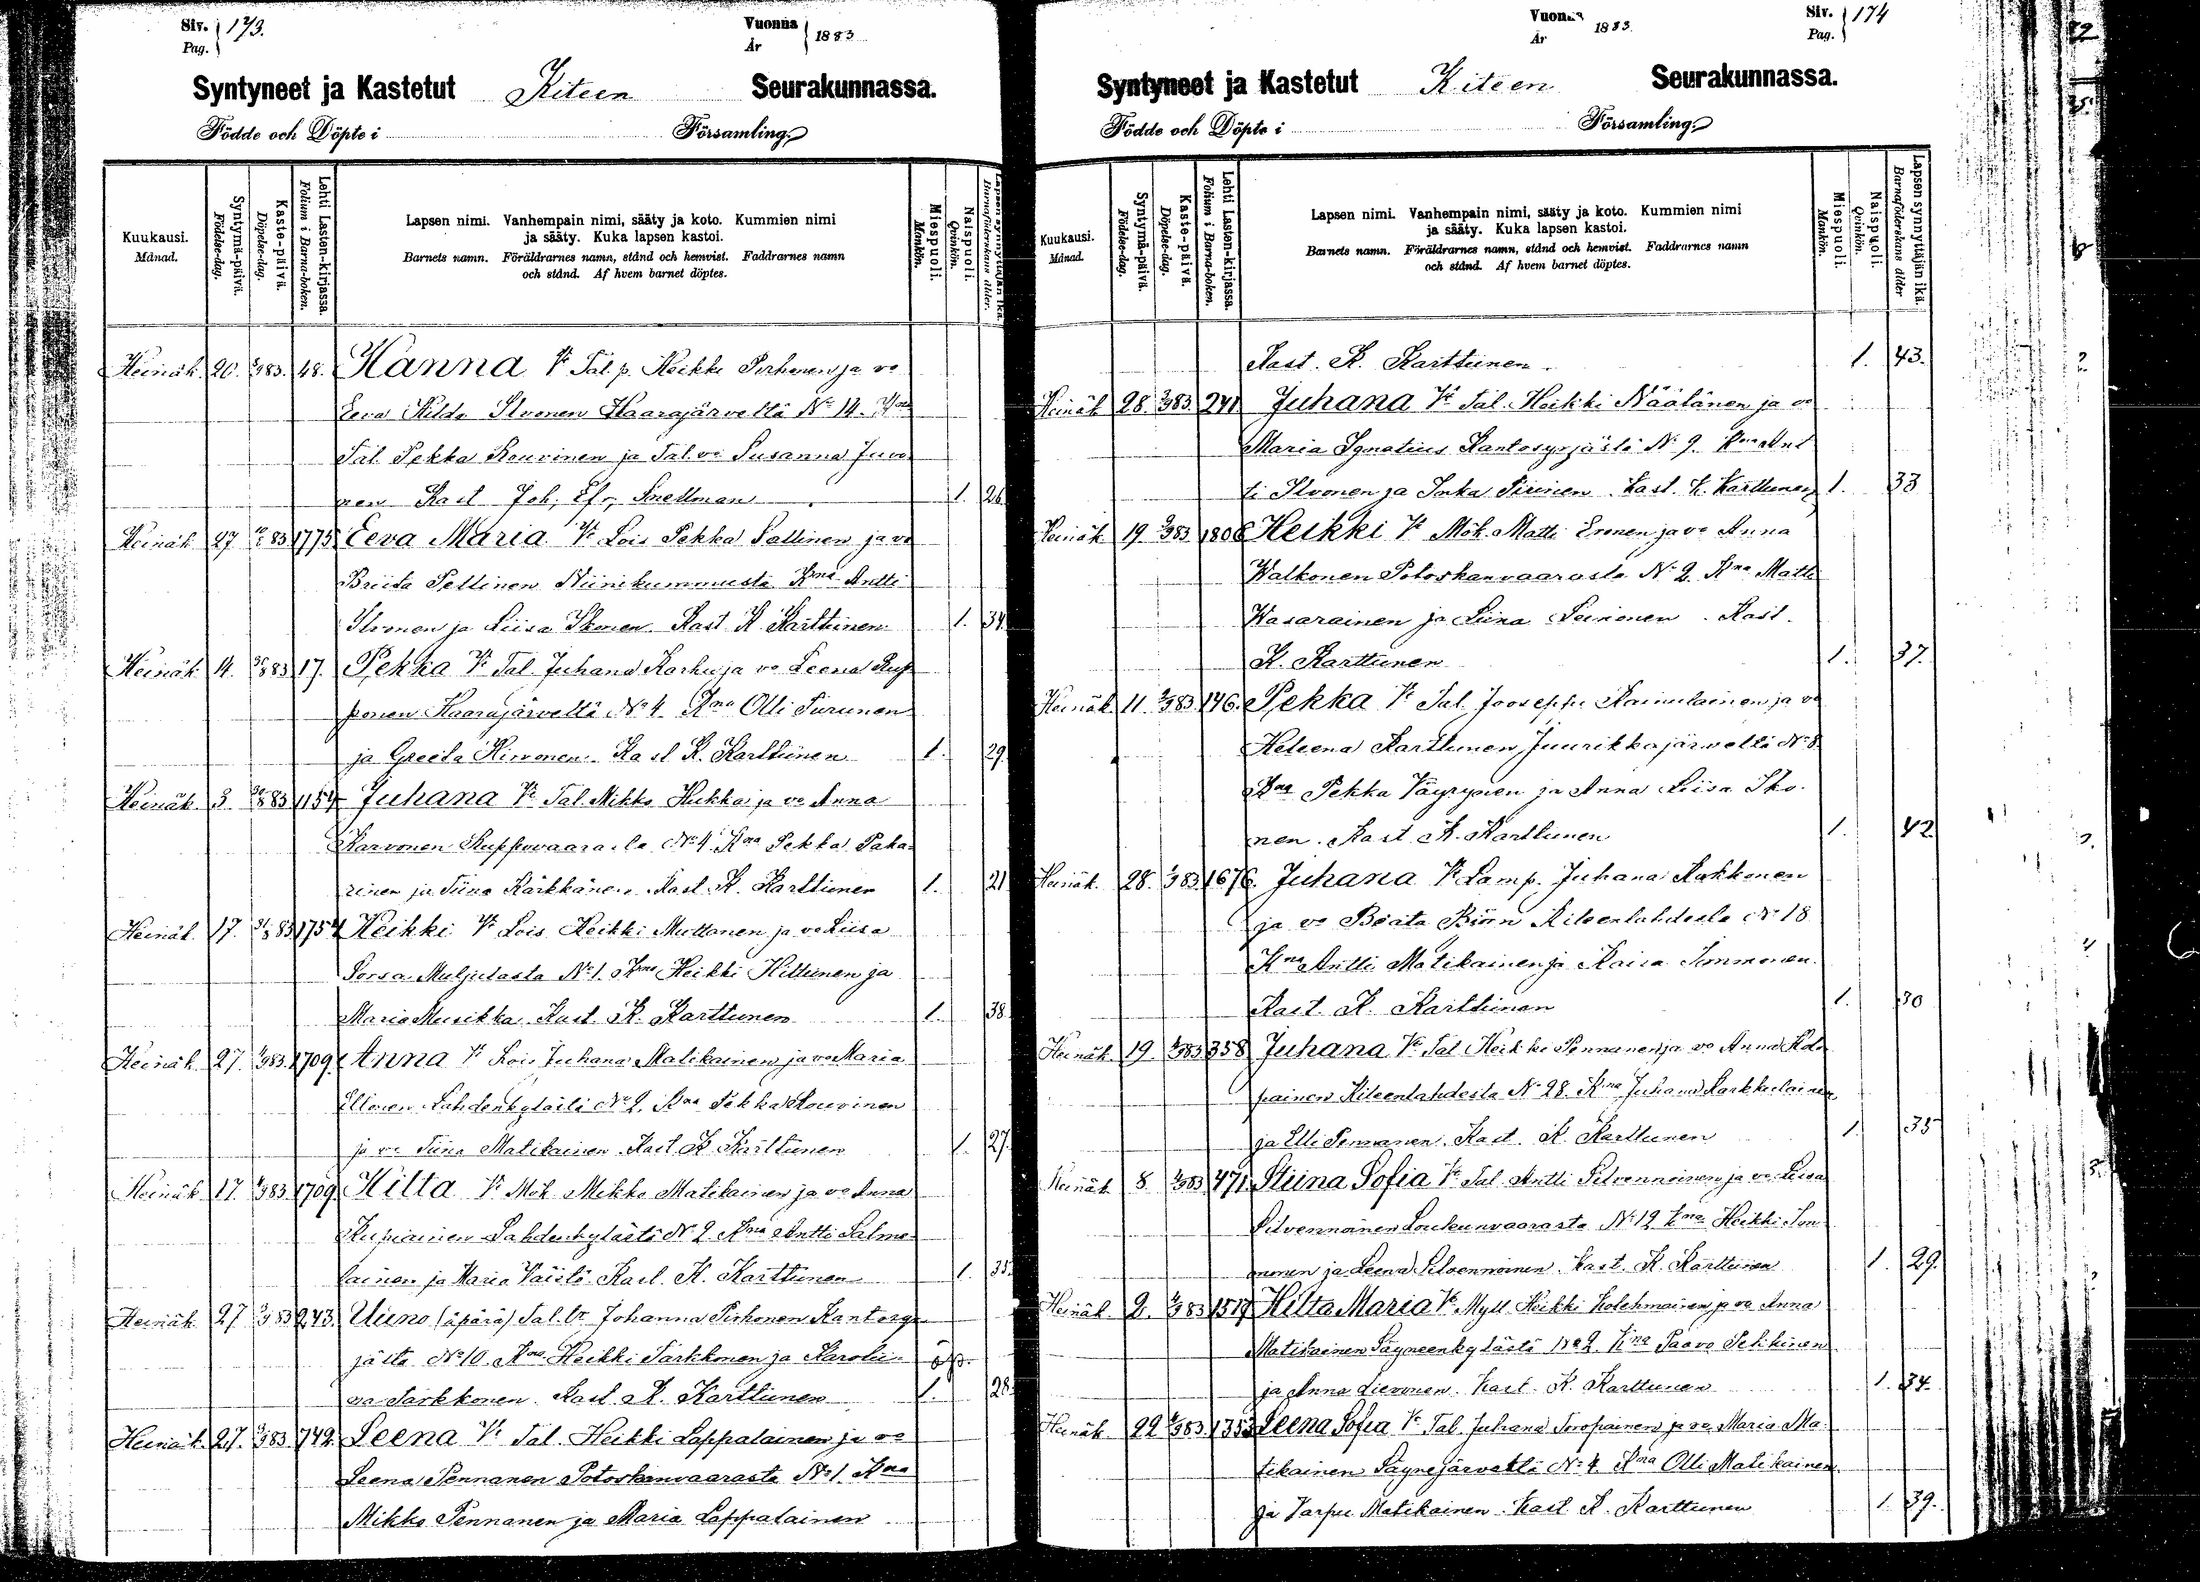 Siv. 173.
Pag.
Vuonna 1883
År
Syntyneet ja Kastetut Kiteen Seurakunnassa.
Födde och Döpte i Församling.
Kuukausi. Månad.
Syntymä-päivä. Födelse-dag.
Kaste-päivä. Döpelse-dag.
Lehti Lasten-kirjassa. Folium i Barna-boken.
Lapsen nimi. Vanhempain nimi, sääty ja koto. Kummien nimi
ja sääty. Kuka lapsen kastoi.
Barnets namn. Föräldrarnes namn, stånd och hemvist. Faddrarnes namn
och stånd. Af hvem barnet döptes.
Miespuoli. Mankön.
Naispuoli. Qvinkön.
Lapsen synnyttäjän ikä. Barnaföderskans ålder.
Heinäk. 20. 83. 48. Hanna Vt Tal. p. Heikki Pirhonen ja vo
Eeva Hilda Ilvonen Haarajärveltä No 14. Kna
Tal. Pekka Rouvinen ja Tal. vo Susanna Juvo
nen Kast Joh. Efr. Snellman 1. 26
Heinäk 27 83 1775 Eeva Maria Vt Lois Pekka Sallinen ja vo
Briita Pellinen Niinikummusta Kna Antti
Ilvonen ja Liisa Ikonen. Kast K Karttunen 1. 34
Heinäk. 14. 83 17. Pekka Vt Tal. Juhana Karhu ja vo Leena Rup
ponen Haarajärveltä No 4. Kna Olli Turunen
ja Greeta Hirvonen. Kast K. Karttunen 1. 29.
Heinäk. 3. 83 1154 Juhana Vt Tal. Mikko Hukka ja vo Anna
Karvonen Ruppovaarasta No 4 Kna Pekka Paka
rinen ja Tiina Kärkkänen. Kast. K. Karttunen 1. 21
Heinäk. 17. 83 1754 Heikki Vt Lois Heikki Muttonen ja vo Liisa
Sorsa Muljulasta No 1. Kna Heikki Hiltunen ja
Maria Musikka. Kast. K. Karttunen 1. 38.
Heinäk. 27. 83. 1709. Anna Vt Lois Juhana Matikainen ja vo Maria
Ellonen Lahdenkylästä No 2. Kna Pekka Rouvinen
ja vo Tiina Matikainen. Kast. K Karttunen 1. 27.
Heinäk 17 83 1709. Hilta Vt Mök Mikko Matikainen ja vo Anna
Kupiainen Lahdenkylästä No 2 Kna Antti Salme
lainen ja Maria Väistö Kast. K. Karttunen 1. 35.
Heinäk 27 83 243. Uuno (äpärä) Tal. tr Johanna Pirhonen Kantosyr
jältä No 10. Kna Heikki Tarkkonen ja Karolii äp.
na Tarkkonen. Kast. K. Karttunen 1. 28.
Heinäk. 27. 83 742. Leena Vt Tal. Heikki Lappalainen ja vo
Leena Pennanen Potoskanvaarasta No 1. Kna
Mikko Pennanen ja Maria Lappalainen
Siv. 174
Pag.
Vuonna 1883.
År
Syntyneet ja Kastetut Kiteen Seurakunnassa.
Födde och Döpte i Församling.
Kuukausi. Månad.
Syntymä-päivä. Födelse-dag.
Kaste-päivä. Döpelse-dag.
Lehti Lasten-kirjassa. Folium i Barna-boken.
Lapsen nimi. Vanhempain nimi, sääty ja koto. Kummien nimi
ja sääty. Kuka lapsen kastoi.
Barnets namn. Föräldrarnes namn, stånd och hemvist. Faddrarnes namn
och stånd. Af hvem barnet döptes.
Miespuoli. Mankön.
Naispuoli. Qvinkön.
Lapsen synnyttäjän ikä. Barnaföderskans ålder
Kast. K. Karttunen. 1. 43.
Heinäk. 28. 83. 241 Juhana Vt Tal. Heikki Näätänen ja vo
Maria Ignatius Kantosyrjästä No 9. Kna Ant
ti Ilvonen ja Inka Sirinen. Kast. K. Karttunen 1. 33
Heinäk 19. 83 1808 Heikki Vt Mök. Matti Eronen ja vo Anna
Walkonen Potoskanvaarasta No 2. Kna Matti
Wasarainen ja Liina Leinonen. Kast.
K. Karttunen 1. 37.
Heinäk. 11. 83 146. Pekka Vt Tal. Jooseppi Kainulainen ja vo
Heleena Karttunen Juurikkajärveltä No 8.
Kna Pekka Väyrynen ja Anna Liisa Iko
nen. Kast. K. Karttunen 1. 42
Heinäk. 28. 83 1676. Juhana Vt Lamp. Juhana Kakkonen
ja vo Beata Björn Kiteenlahdesta No 18
Kna Antti Matikainen ja Kaisa Immonen.
Kast. K. Karttunen 1. 30
Heinäk. 19. 83 358 Juhana Vt Tal Heikki Pennanen ja vo Anna Kol
painen Kiteenlahdesta No 28. Kna Juhana Karkkulainen
ja Elli Pennanen. Kast. K. Karttunen 1. 35
Heinäk. 8. 83 471. Stiina Sofia Vt Tal. Antti Silvennoinen ja vo Liisa
Silvennoinen Loukunvaarasta No 12 Kna Heikki Im
monen ja Leena Silvennoinen. Kast. K. Karttunen 1. 29.
Heinäk. 2. 83 1517 Hilta Maria Vt Myll. Heikki Kolehmainen ja vo Anna
Matikainen Säyneenkylästä No 2. Kna Paavo Pekkinen
ja Anna Lievonen. Kast. K. Karttunen 1. 34.
Heinäk 22 83. 1353 Leena Sofia Vt Tal. Juhana Toropainen ja vo Maria Ma
tikainen Säynejärveltä No 4. Kna Olli Matikainen
ja Varpu Matikainen. Kast K. Karttunen 1. 39.